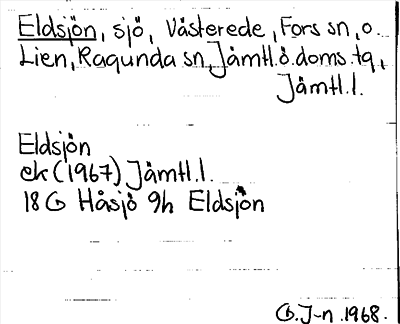 Eldsjön, sjö, Västerede, Fors sn, o.
Lien, Ragunda sn, Jämtl.ö.doms.tg,
Jämtl.l.
Eldsjön
ek (1967) Jämtl.l.
18 G Håsjö 9h Eldsjön
G.J-n.1968.